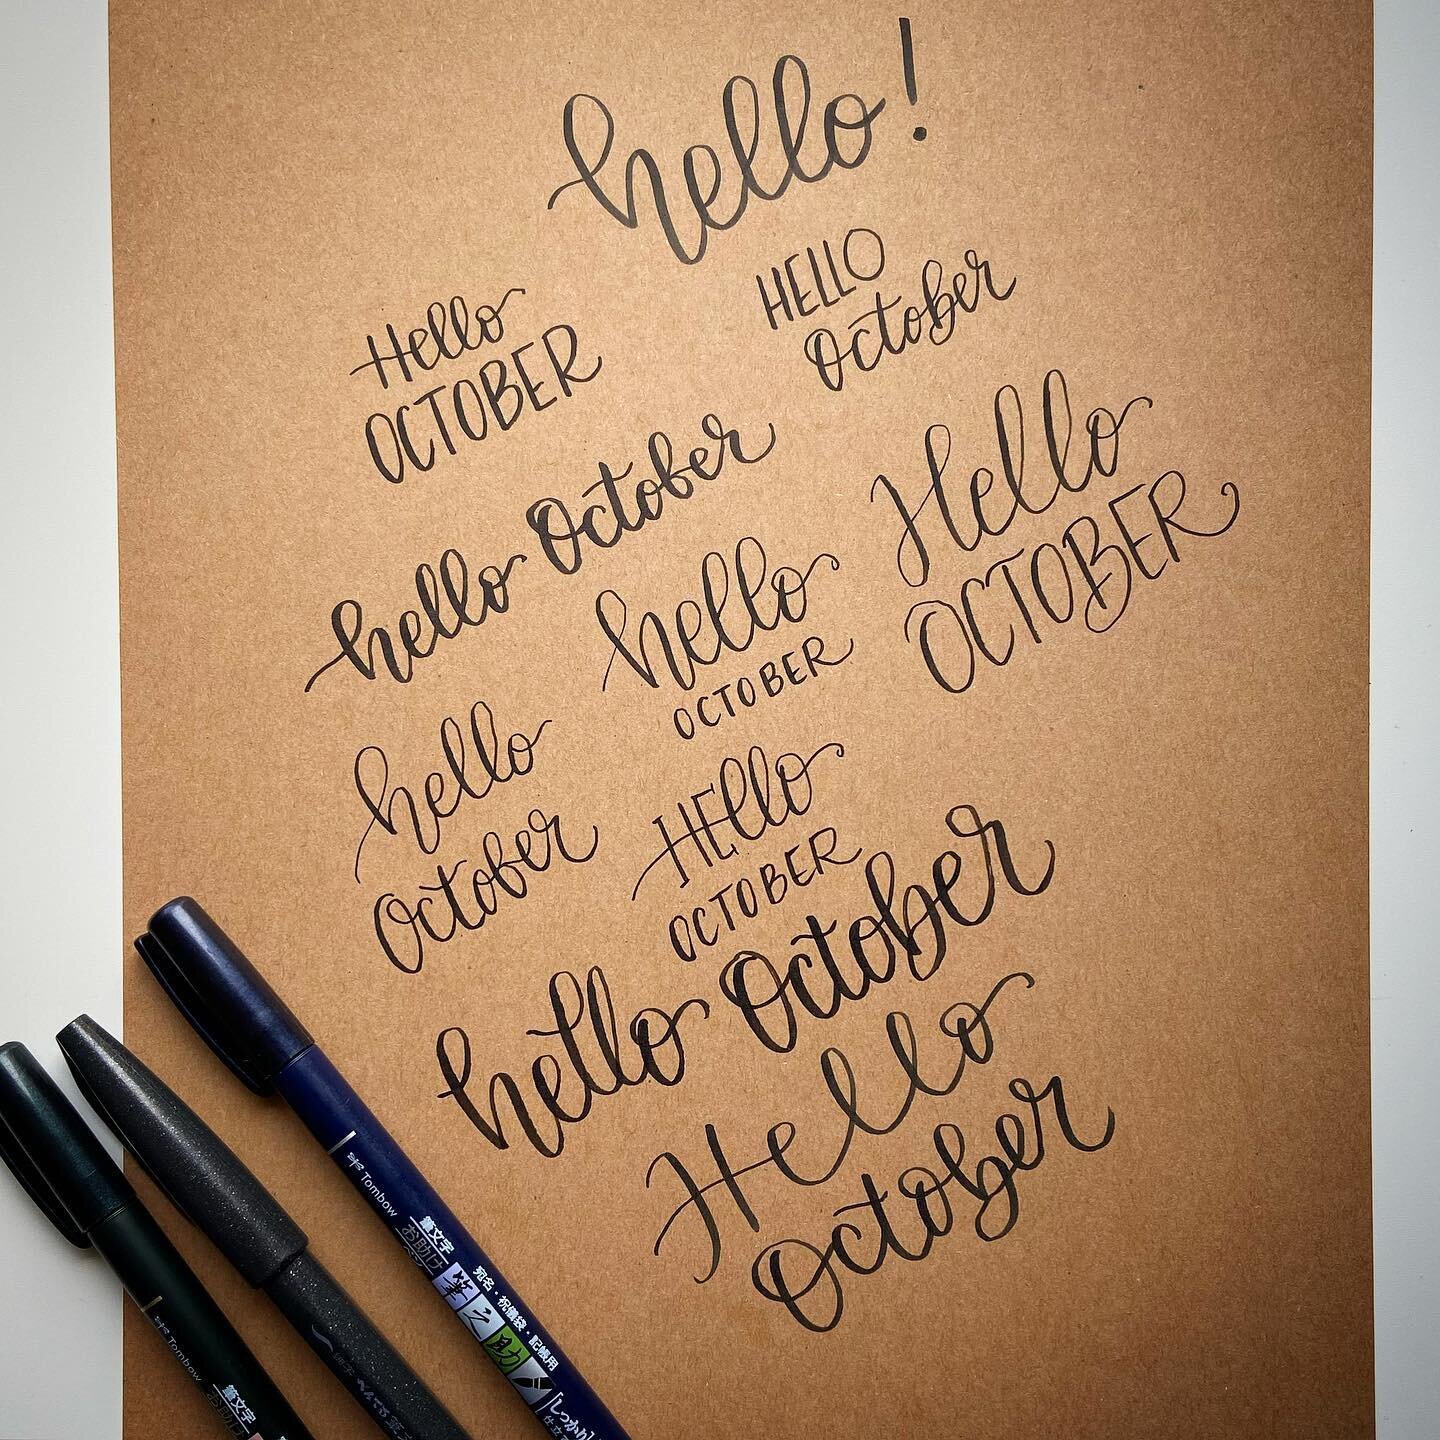 hello!
Hello
OCTOBER
HELLO
October
hello October
Hello
OCTOBER
hello
OCTOBER
hello
October
HEllo
OCTOBER
hello October
Hello
October
Tombow
筆文字
お助け
筆之助
宛名・祝儀袋・記帳用
しっかり
仕立
Tombow
筆文字
お助け